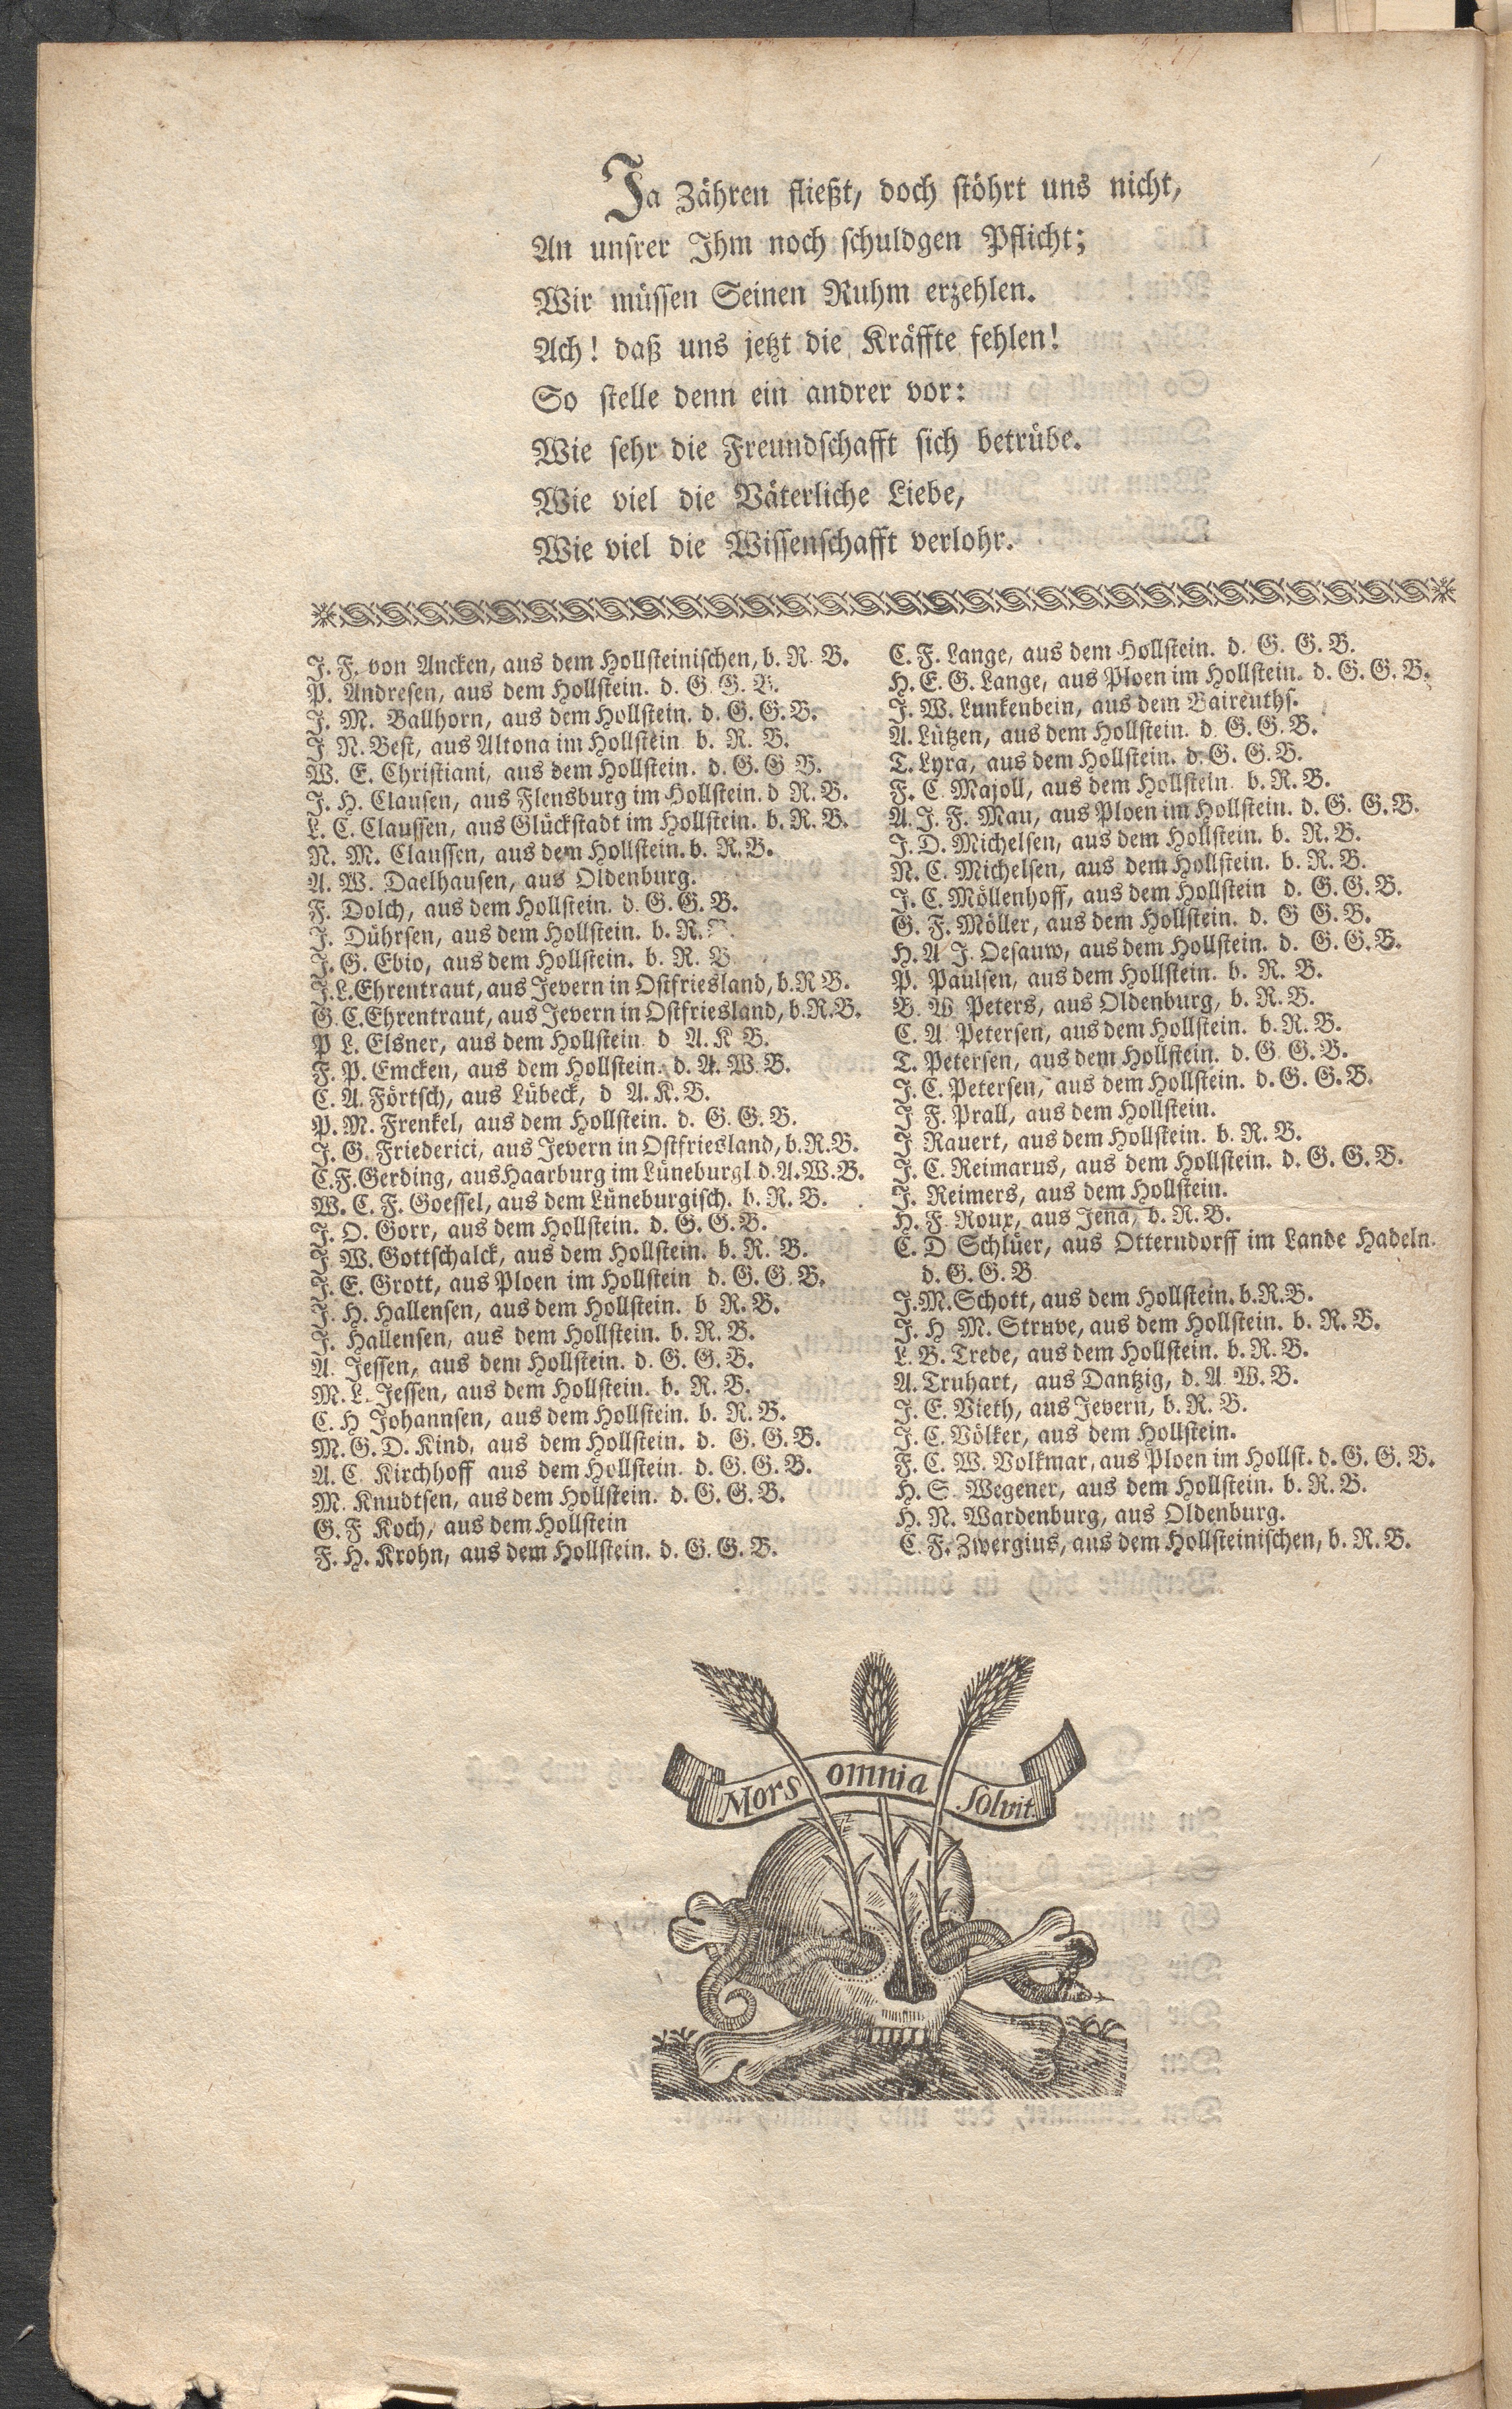 Ja Zähren fließt, doch stöhrt uns nicht,
An unsrer Ihm noch schuldgen Pflicht;
Wir müssen Seinen Ruhm erzehlen.
Ach! daß uns jetzt die Kräffte fehlen!
So stelle denn ein andrer vor:
Wie sehr die Freundschafft sich betrübe.
Wie viel die Väterliche Liebe,
Wie viel die Wissenschafft verlohr.
J. F. von Ancken, aus dem Hollsteinischen, b. R. B.
P. Andresen, aus dem Hollstein. d. G. G. B.
J. M. Ballhorn, aus dem Hollstein. d. G. G. B.
J N. Best, aus Altona im Hollstein b. R. B.
W. E. Christiani, aus dem Hollstein. d. G. G B.
J. H. Clausen, aus Flensburg im Hollstein. d R. B.
L. C. Claussen, aus Glückstadt im Hollstein. b. R. B.
N. M. Claussen, aus dem Hollstein. b. R. B.
A. W. Daelhausen, aus Oldenburg.
F. Dolch, aus dem Hollstein. d. G. G. B.
J. Dührsen, aus dem Hollstein. b. R. B.
J. G. Ebio, aus dem Hollstein. b. R. B
J. L. Ehrentraut, aus Jevern in Ostfriesland, b. R B.
G. C. Ehrentraut, aus Jevern in Ostfriesland, b. R. B.
P L. Elsner, aus dem Hollstein d A. K B.
F. P. Emcken, aus dem Hollstein. d. A. W. B.
C. A. Förtsch, aus Lübeck, d A. K. B.
P. M. Frenkel, aus dem Hollstein. d. G. G. B.
J. G. Friederici, aus Jevern in Ostfriesland, b. R. B.
C. F. Gerding, aus Haarburg im Lüneburgl. d. A. W. B.
W. C. F. Goessel, aus dem Lüneburgisch. b. R. B.
J. O. Gorr, aus dem Hollstein. d. G. G. B.
J. W. Gottschalck, aus dem Hollstein. b. R. B.
J. E. Grott, aus Ploen im Hollstein d. G. G. B.
J. H. Hallensen, aus dem Hollstein. b R. B.
J. Hallensen, aus dem Hollstein. b. R. B.
A. Jessen, aus dem Hollstein. d. G. G. B.
M. L. Jessen, aus dem Hollstein. b. R. B.
C. H Johannsen, aus dem Hollstein. b. R. B.
M. G. D. Kind, aus dem Hollstein. d. G. G. B.
A. C. Kirchhoff aus dem Hollstein. d. G. G. B.
M. Knudtsen, aus dem Hollstein. d. G. G. B.
G. F Koch, aus dem Hollstein
F. H. Krohn, aus dem Hollstein. d. G. G. B.
C. F. Lange, aus dem Hollstein. d. G. G. B.
H. E. G. Lange, aus Ploen im Hollstein. d. G. G. B.
J. W. Lunkenbein, aus dem Baireuths.
A. Lützen, aus dem Hollstein. d. G. G. B.
T. Lyra, aus dem Hollstein. d. G. G. B.
F. C. Majoll, aus dem Hollstein b. R. B.
A. J. F. Mau, aus Ploen im Hollstein. d. G. G. B.
J. D. Michelsen, aus dem Hollstein. b. R. B.
N. C. Michelsen, aus dem Hollstein. b. R. B.
J. C. Möllenhoff, aus dem Hollstein d. G. G. B.
G. F. Möller, aus dem Hollstein. d. G G. B.
H. A J. Oesauw, aus dem Hollstein. d. G. G. B.
P. Paulsen, aus dem Hollstein. b. R. B.
B. W Peters, aus Oldenburg, b. R. B.
C. A. Petersen, aus dem Hollstein. b. R. B.
T. Petersen, aus dem Hollstein. d. G. G. B.
J. C. Petersen, aus dem Hollstein. d. G. G. B.
J F. Prall, aus dem Hollstein.
J Rauert, aus dem Hollstein. b. R. B.
J. C. Reimarus, aus dem Hollstein. d. G. G. B.
J. Reimers, aus dem Hollstein.
H. F. Roux, aus Jena, b. R. B.
C. D Schlüer, aus Otterndorff im Lande Hadeln.
d. G. G. B
J. M. Schott, aus dem Hollstein. b. R. B.
J. H M. Struve, aus dem Hollstein. b. R. B.
L. B. Trede, aus dem Hollstein. b. R. B.
A. Truhart, aus Dantzig, d. A. W. B.
J. E. Vieth, aus Jevern, b. R. B.
J. C. Völker, aus dem Hollstein.
F. C. W. Volkmar, aus Ploen im Hollst. d. G. G. B.
H. S. Wegener, aus dem Hollstein. b. R. B.
H. N. Wardenburg, aus Oldenburg.
C. F. Zwergius, aus dem Hollsteinischen, b. R. B.
Mors omnia solvit.